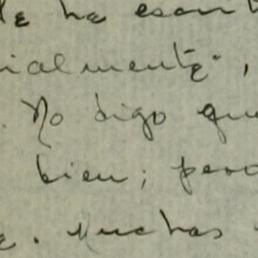 le ha escri
ialmente",
. No digo que
bien; pero
e. Muchas